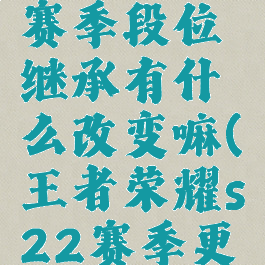 赛季段位
继承有什
么改变嘛(
王者荣耀s
22赛季更